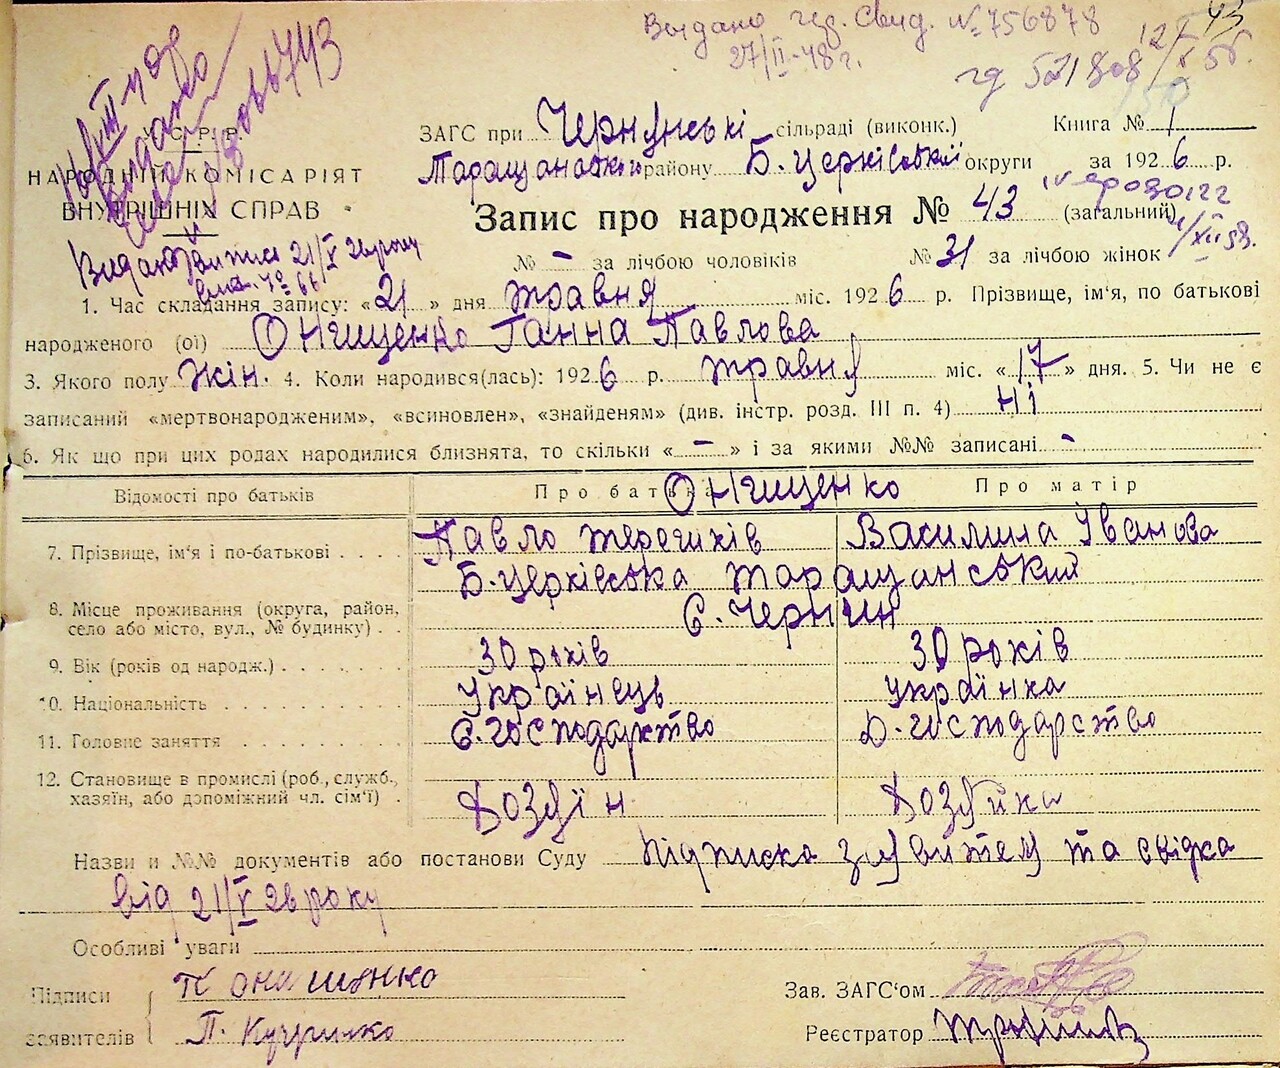 Видано гед. Свид. № 756878
27/II-48 г.
43
гд 521808
У.С.Р.Р.
НАРОДНІЙ КОМІСАРІЯТ
ВНУТРІШНІХ СПРАВ
Видано виписи 21/V 26 року
ЗАГС при Чернинські сільраді (виконк.) Книга № 1
Таращанського району Б. Церківської округи за 1926 р.
Запис про народження № 43 (загальний)
№ - за лічбою чоловіків № 31 за лічбою жінок
1. Час складання запису: «21» дня травня міс. 1926 р. Прізвище, ім'я, по батькові
народженого (ої) Онищенко Ганна Павлова
3. Якого полу жін. 4. Коли народився(лась): 1926 р. травня міс. «17» дня. 5. Чи не є
записаний «мертвонародженим», «всиновлен», «знайденям» (див. інстр. розд. III п. 4) ні
6. Як що при цих родах народилися близнята, то скільки «-» і за якими №№ записані -
Відомості про батьків Про батька Онищенко Про матір
7. Прізвище, ім'я і по-батькові Павло Василина Іванова
Б. Церківська Таращанський
8. Місце проживання (округа, район,
село або місто, вул., № будинку) с. Чернин
9. Вік (років од народж.) 30 років 30 років
10. Національність Українець українка
11. Головне заняття С. господарство Д. господарство
12. Становище в промислі (роб., служб.,
хазяїн, або допоміжний чл. сім'ї) Хозяїн Хозяйка
Назви и №№ документів або постанови Суду Підписка заявителя та свідка
від 21/V 26 року
Особливі уваги
Підписи
заявителів
П. Кучринко
Зав. ЗАГС'ом
Реєстратор